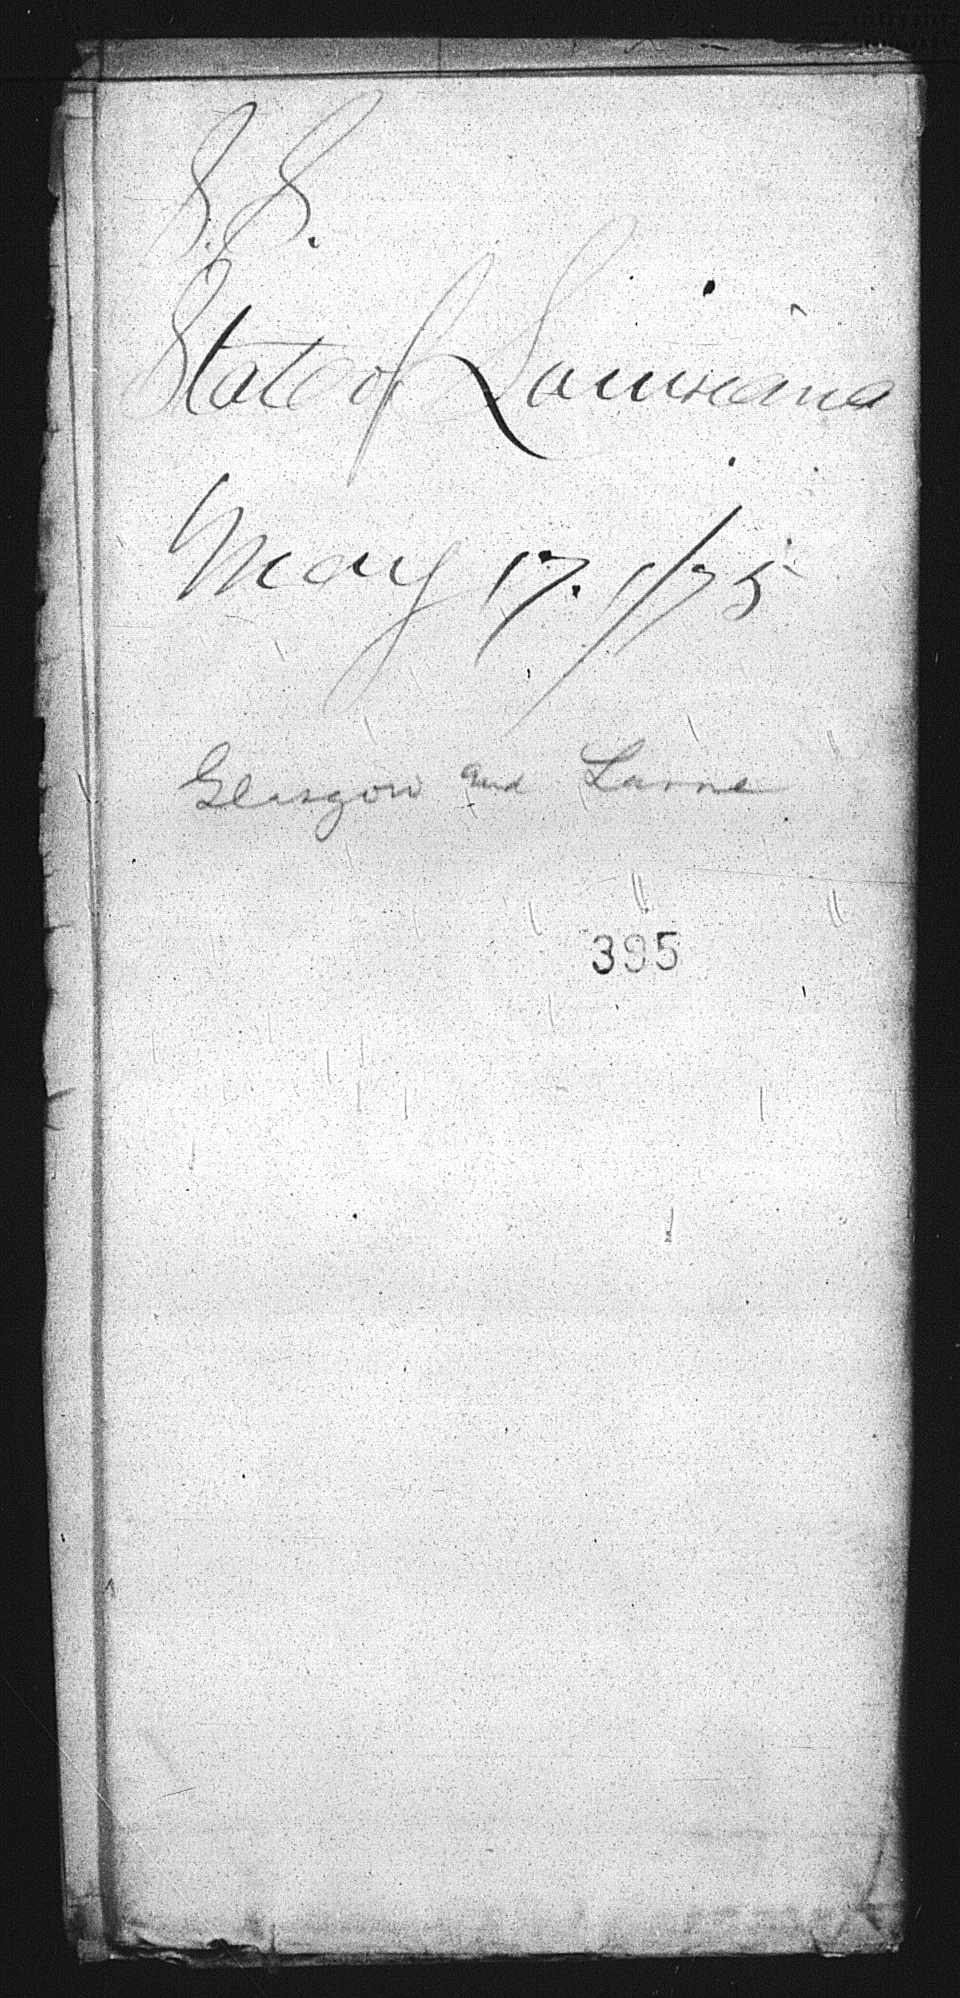 S.S.
State of Louisiana
May 17. 1/75
Glasgow and Larne
395